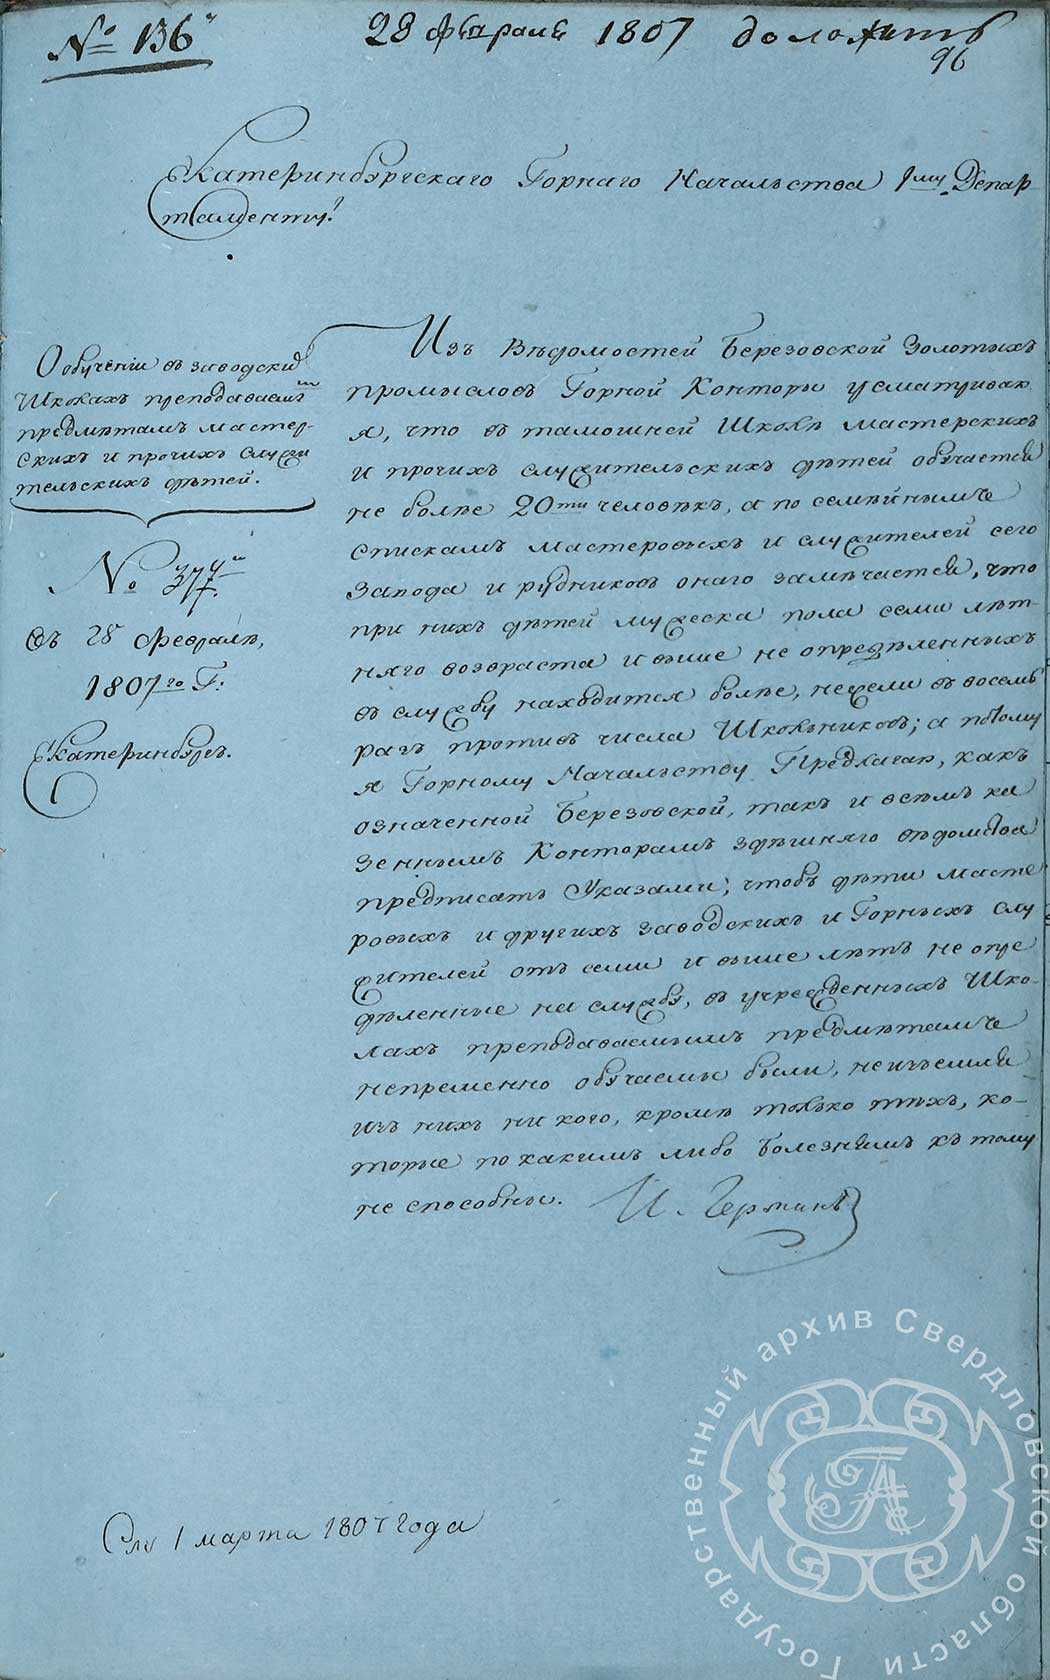 № 136
28 февраля 1807 доложить
96
Екатеринбургскаго Горнаго Начальства 1му Депар
таменту!
О обученіи въ заводских
Школахъ преподаваемым
предмѣтамъ мастер-
скихъ и прочихъ служи
тельскихъ дѣтей.
№ 377.
28 Февраля,
1807го Г:
Екатеринбургъ.
Изъ Вѣдомостей Березовской Золотыхъ
промысловъ Горной Конторы усматривая
я, что въ тамошней Школѣ мастерскихъ
и прочихъ служительскихъ дѣтей обучается
не болѣе 20ти человѣкъ, а по семѣйнымъ
спискамъ мастеровыхъ и служителей сего
Завода и рудниковъ онаго замѣчается, что
при нихъ дѣтей мужеска пола семи лѣт-
няго возвраста и выше не опредѣленныхъ
въ службу находится болѣе, нежели въ восемь
разъ противъ числа Школьниковъ; а потому
я Горному Начальству Предлагаю, какъ
означенной Березовской, такъ и всѣмъ ка
зеннымъ Конторамъ здѣшняго вѣдомства
предписать Указами; чтобъ дѣти масте
ровыхъ и другихъ заводскихъ и Горныхъ слу
жителей отъ семи и выше лѣтъ не опре
дѣленные на службу, въ учрежденныхъ Шко-
лахъ преподаваемымъ предмѣтамъ
непременно обучаемы были, не изъемля
изъ нихъ ни кого, кромѣ только тѣхъ, ко-
торые по какимъ либо болезнямъ къ тому
не способны. И. Германъ
1 марта 1807 года
Государственный архив Свердловской области
ГА